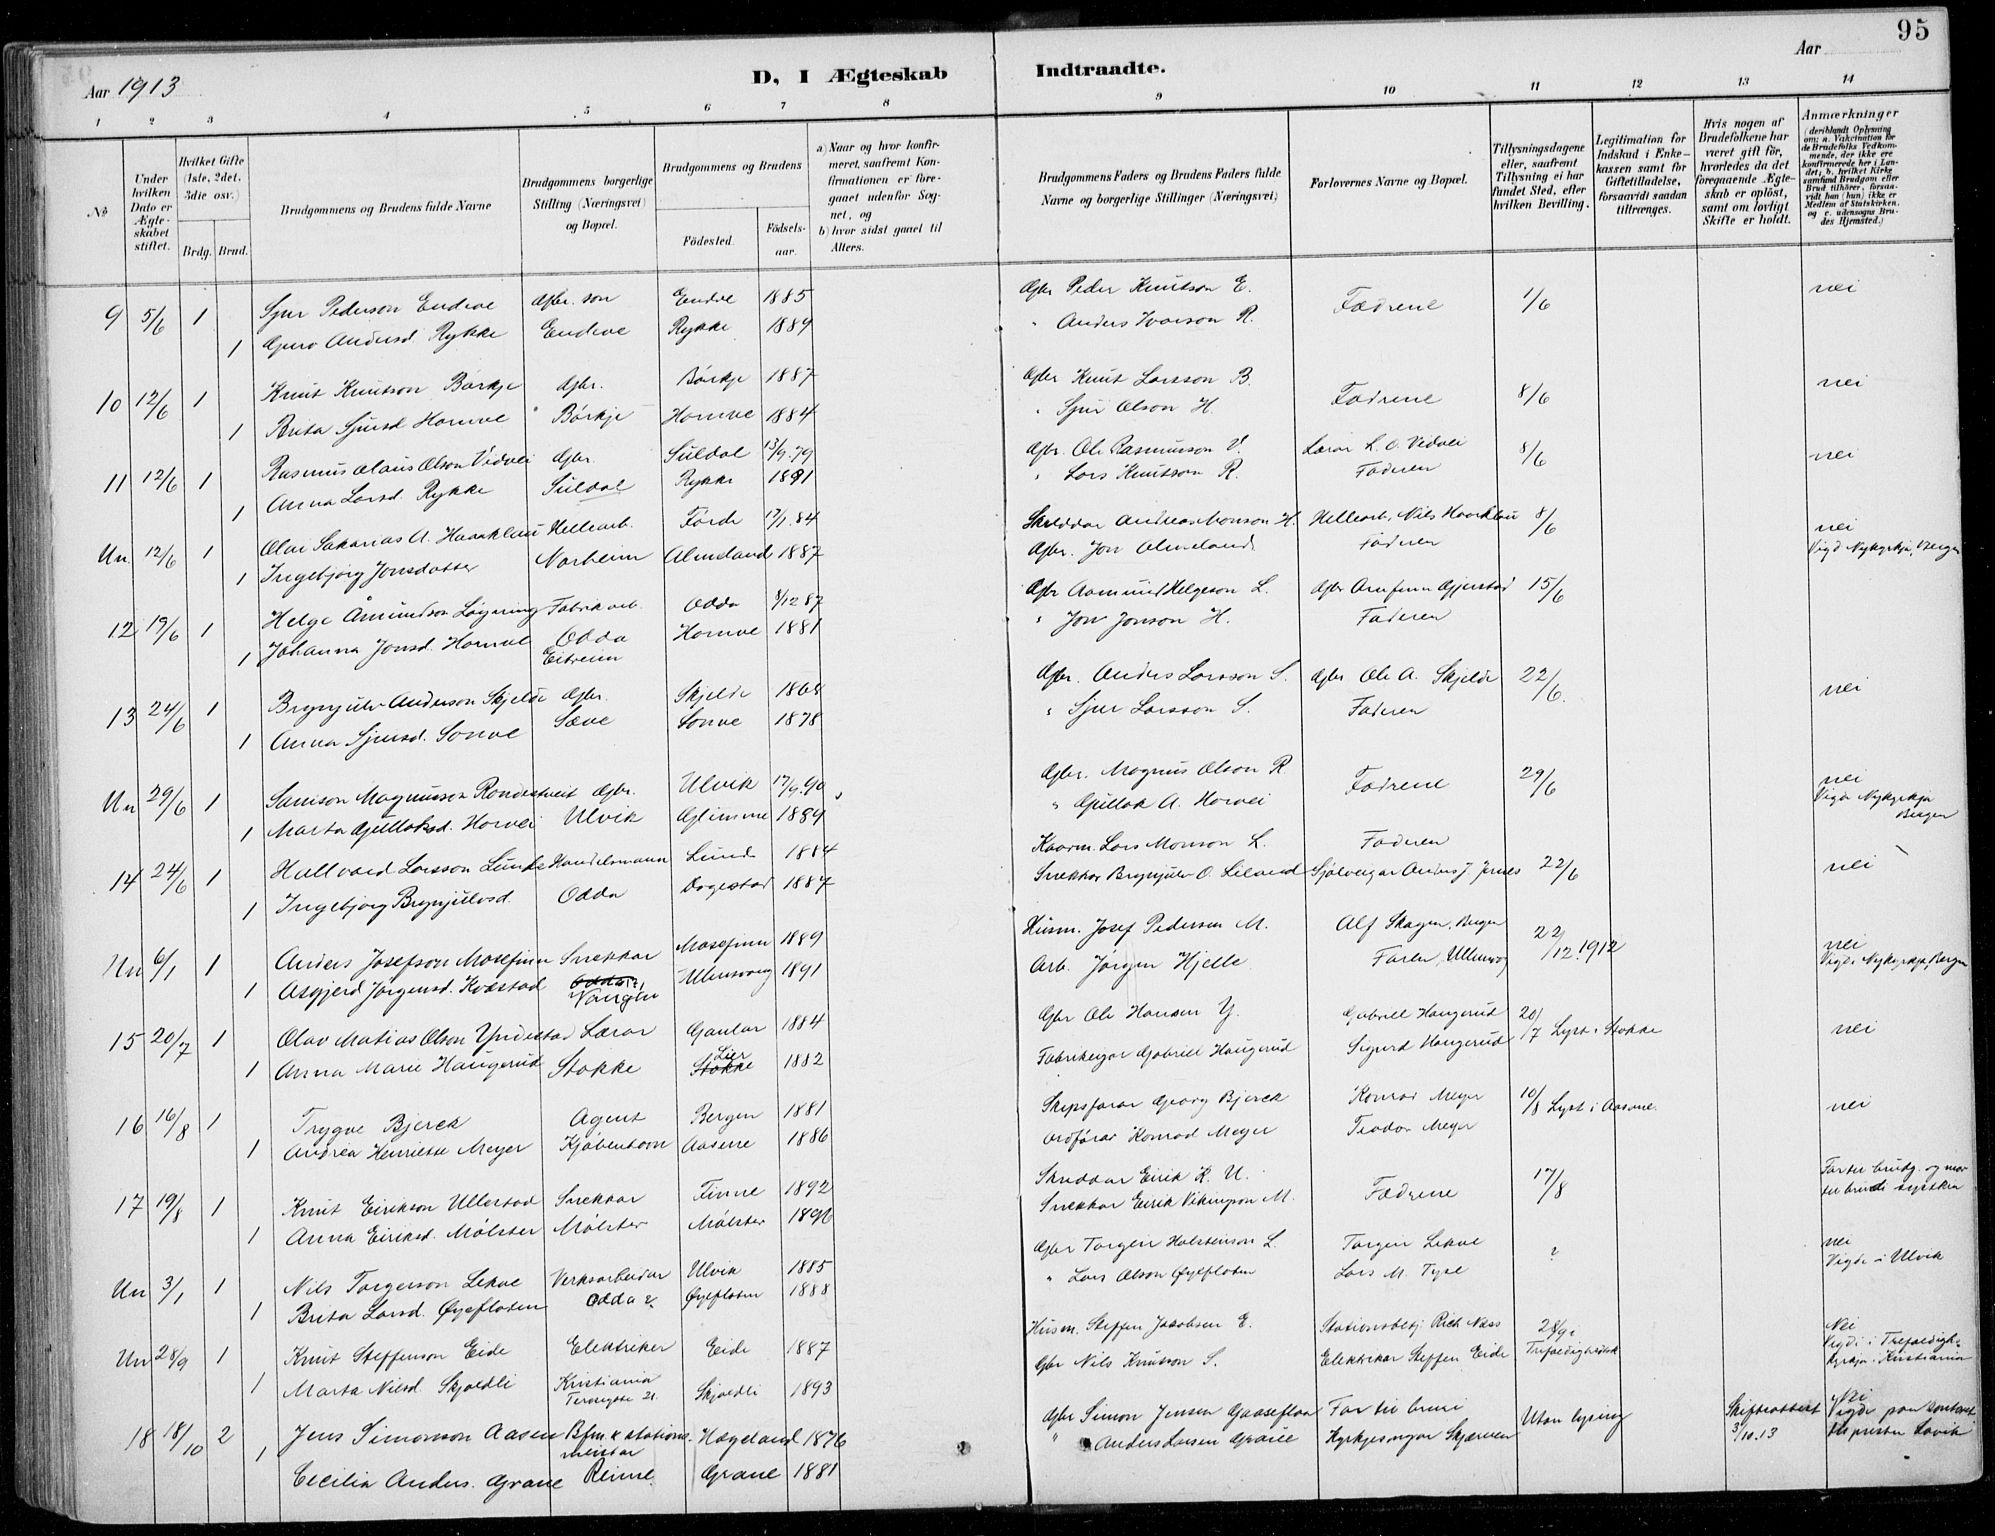 95
Aar 1913
D, I Ægteskab Indtraadte.
Aar
1 2 3 4 5 6 7 8 9 10 11 12 13 14
No
Under hvilken Dato er Ægte-skabet stiftet.
Hvilket Gifte (1ste, 2det, 3die osv.)
Brdg. Brud.
Brudgommens og Brudens fulde Navne
Brudgommens borgerlige Stilling (Næringsvei) og Bopæl.
Brudgommens og Brudens
Födested. Födsels-aar.
a) Naar og hvor konfir-meret, saafremt Kon-firmationen er fore-gaaet udenfor Sog-net, og
b) hvor sidst gaaet til Alters.
Brudgommens Faders og Brudens Faders fulde Navne og borgerlige Stillinger (Næringsvei)
Forlovernes Navne og Bopæl.
Tillysningsdagene eller, saafremt Tillysning ei har fundet Sted, efter hvilken Bevilling.
Legitimation for Indskud i Enke-kassen samt for Giftetilladelse, forsaavidt saadan tiltrænges.
Hvis nogen af Brudefolkene har været gift för, hvorledes da det foregaaende Ægte-skab er oplöst, samt om lovligt Skifte er holdt.
Anmærkninger (deriblandt Oplysning om: a. Vakcination for de Brudefolks Vedkom-mende, der ikke ere konfirmerede her i Lan-det; b. hvilket Kirke samfund Brudgom efter Brud tilhörer, forsaa-vidt han (hun) ikke er Medlem af Statskirken, og c. udensogns Bru-des Hjemsted.)
9 5/6 1 Sjur Pederson Endeve Gbr. son Endve 1885 Gbr Peder Knutson E. Fædrene 1/6 nei
1 Guro Andersd. Rykke Endeve Rykke 1889 " Anders Ivarson R.
10 12/6 1 Knut Knutson Börkje Gbr. Börkje 1887 Gbr Knut Larsson B. Fædrene 8/6 nei
1 Brita Sjursd Hornve Børkje Hornve 1884 " Sjur Olson H.
11 12/6 1 Rasmus Olaus Olson Vidvei Gbr. Suldal 13/9.79 Gbr. Ole Rasmusson V. Lærar L. O. Vedvei 8/6 nei
1 Anna Larsd. Rykke Suldal Rykke 1881 " Lars Knutson R. Faderen
Un. 12/6 1 Olai Sakarias A. Haaklau Hellearb. Förde 17/1.84 Skreddar Andreas Monson H. Hellearb. Nils Haaklau 8/6 nei
1 Ingebjørg Jonsdotter Norheim Almeland 1887 Gbr. Jon Almeland Faderen Vigd Nykyrkja, Bergen
12 19/6 1 Helge Åmundson Løyning Fabrik arb. Odda 3/12 87 Gbr Aamund Helgeson L. Gbr Arnfinn Gjerstad 15/6
1 Johanna Jonsd. Hornve Odda Hornve 1881 " Jon Jonson H. Faderen
Eitreim
13 24/6 1 Brynjulv Anderson Skjelde Gbr. Skjelde 1868 Gbr. Anders Larsson S. Gbr Ole A. Skjelde 22/6. nei
1 Anna Sjursd. Sonve Sæve Sonve 1878 " Sjur Larsson S. Faderen
Un 29/6 1 Samson Magnusson Rondestveit Gbr. Ulvik 17/9.90 Gbr. Magnus Olson R. Fædrene 29/6 nei
1 Marta Gjullaksd. Horvei Ulvik Glimme 1889 " Gjullak A. Horvei Vigde Nykyrkja Bergen
14 24/6 1 Hallvard Larsson Lunde Handelsmann Lunde 1884 Kaarm. Lars Monson L. Faderen 22/6 nei
1 Ingebjørg Brynjulvsd. Odda Dagestad 1887 Snekkar Brynjulv O. Liland Sjølveigar Anders J. Jernes
Un 6/1 1 Anders Josefson Mosefinn Snekkar Mosefinn 1889 Husm. Josef Pedersen M. Alf Skagen, Bergen 22/12.1912 nei
1 Asgjerd Jörgensd. Kvåstad Vangen Ullensvang 1891 Arb. Jørgen Hjelle Faren, Ullensvg Vigde Nykyrkja, Bergen
15 20/7 1 Olav Matias Olson Yndestad Lærar Gaular 1884 Gbr Ole Hansen Y. Gabriell Haugerud 20/7 Lyst i Stokke nei
1 Anna Marie Haugerud Stokke Stokke Lier 1882 Fabrikeigar Gabriell Haugerud Sigurd Haugerud
16 16/8 1 Trygve Bjerck Agent Bergen 1881 Skipsførar Georg Bjerck Konrad Meyer 10/8 Lyst i Aasene. nei
1 Andrea Henriette Meyer Kjøbenhavn Aasene 1886 Ordförar Konrad Meyer Teodor Meyer
17 19/8 1 Knut Eirikson Ullestad Snekkar Finne 1892 Skreddar Eirik K. U. Fædrene 17/8 Far til brudg. og mor til brudi syskin
1 Anna Eiriksd. Mølster Mølster Mølster 1896 Snekkar Eirik Vikingson M.
Un 3/1 1 Nils Torgerson Lekve Verksarbeidar Ulvik 1885 Gbr Torgeir Halstenson L. Torgeir Lekve ? nei
1 Brita Larsd. Øyefloten Odda Øyefloten 1888 " Lars Olson Øyefloten Lars M. Tyse Vigde i Ulvik
Un 28/9 1 Knut Steffenson Eide Elektriker Eide 1887 Husm. Steffen Jakobsen E. Stationsbetj. Rich Næss 28/9 i Nei
1 Marta Nilsd. Skjoldli Kristiania Skjoldli 1893 Gbr Nils Knutson S. Elektrikar Steffen Eide Trefoldighedsk Vigde i Trefoldigh. kyrkja i Kristiania
18 18/10 2 Jens Simonson Aasen Bfm. & stations-meistar Hægeland 1876 Gbr Simon Jensen Gaaseflaa Far til brui Utan lysing Skifteattest 3/10.13 Nei
1 Cecilia Anders. Grane Reime Grane 1881 " Anders Larsen Grane Kyrkjesongar Skjerven Vigde paa kontoret til presten Lavik